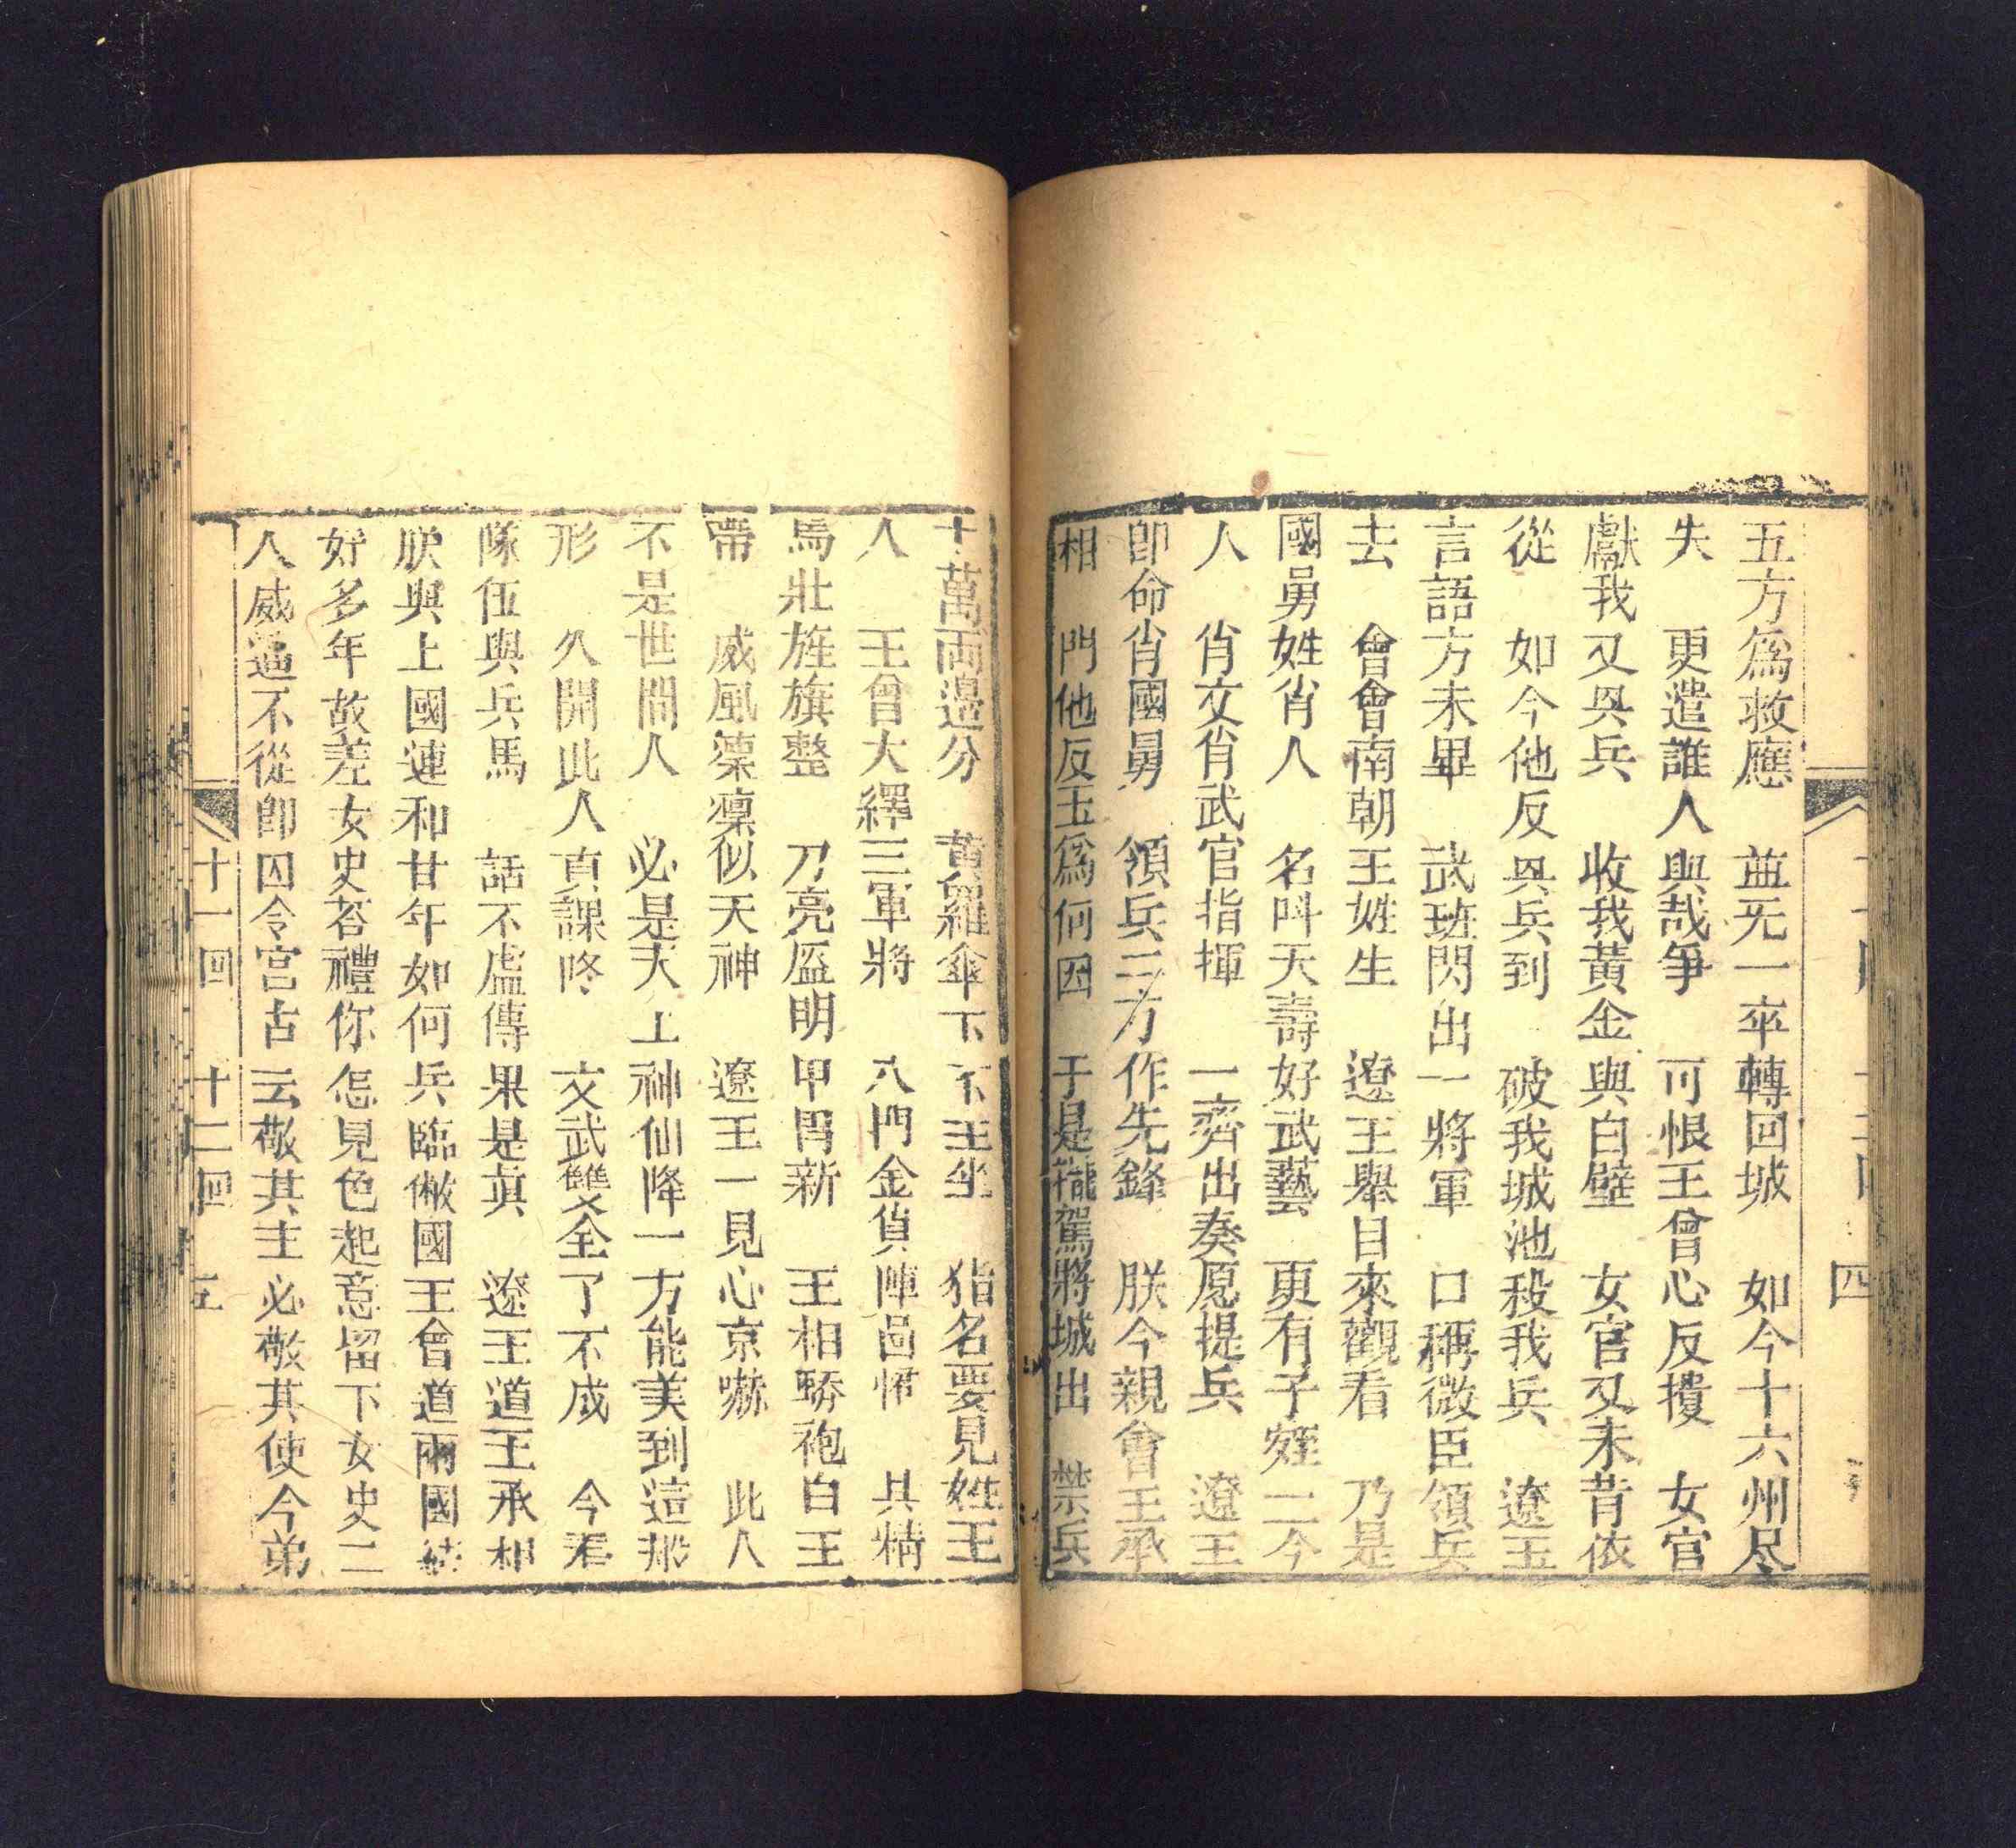 五方爲救應 並无一卒轉回城 如今十六州尽
失 更遣誰人與哉爭 可恨王曾心反㨲 女官
獻我又興兵 收我黃金與白璧 女官又未昔依
從 如今他反興兵到 破我城池殺我兵 遼王
言語方未畢 武班閃出一將軍 口稱微臣領兵
去 會會南朝王姓生 遼王舉目來觀看 乃是
國舅姓肖人 名叫天壽好武藝 更有子姪二今
人 肖文肖武官指揮 一齊出奏愿提兵 遼王
卽命肖國舅 領兵二万作先鋒 朕今親會王承
相 問他反王爲何因 于是攏駕將城出 禁兵
四
十萬兩邊分 黃羅傘下 王坐 指名要見姓王
人 王曾大繹三軍將 八門金貨陣 其精
馬壯旌旗整 刀亮盔明甲冑新 王相騎袍白玉
帶 威風凜凜似天神 遼王一見心京嚇 此人
不是世間人 必是天上神仙降一方能美到這那
形 久開此人真課咚 文武雙全了不成 今看
隊伍與兵馬 話不虛傳果是眞 遼王道王承相
朕與上國連和廿年如何兵臨敝國王曾道兩國
好多年故差女史荅禮你怎見色起意留下女史二
人威逼不從卽囚令宮古云敬其主必敬其使今弟
十一回 十二回 五